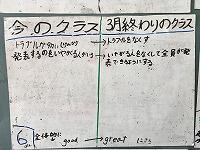 今のクラス
3月終わりのクラス
トラブルが多い
→トラブルをなくす
発表するのをいやがる人がいる
→いやがる人をなくして全員が発表できるようにする
6 全体的に good → great